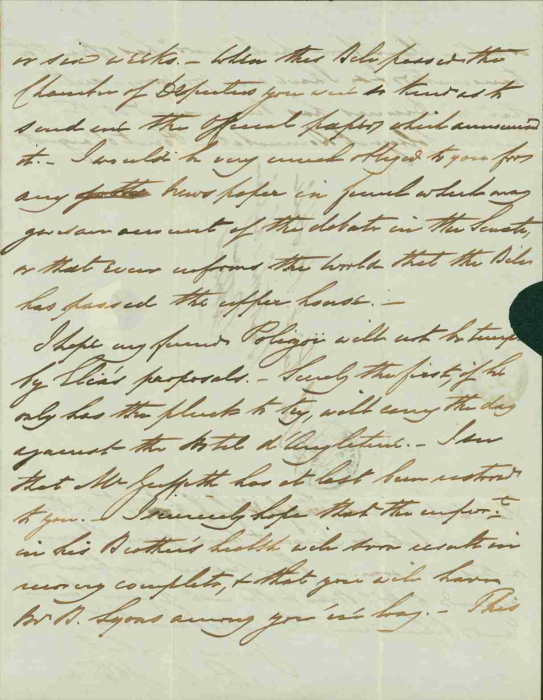 or six weeks. – When this Bill passed the
Chamber of Deputies you were so kind as to
send me the Official paper, which announced
it. – I would be very much obliged to you for
any newspaper in which may
give an account of the debate in the Senate,
or that even informs the world that the Bill
has passed the upper house. –
I hope my friend will not be
by Elia's proposals. – Surely the first, if he
only has the pluck to try, will carry the day
against the Hotel d'Angleterre. – I see
that Mr Griffith has at last been restored
to you. – I sincerely hope that the improv.t
in his Brother's health will soon result in
recovery complete, & that you will have
Bd. Lyons among you 'ere long. – This